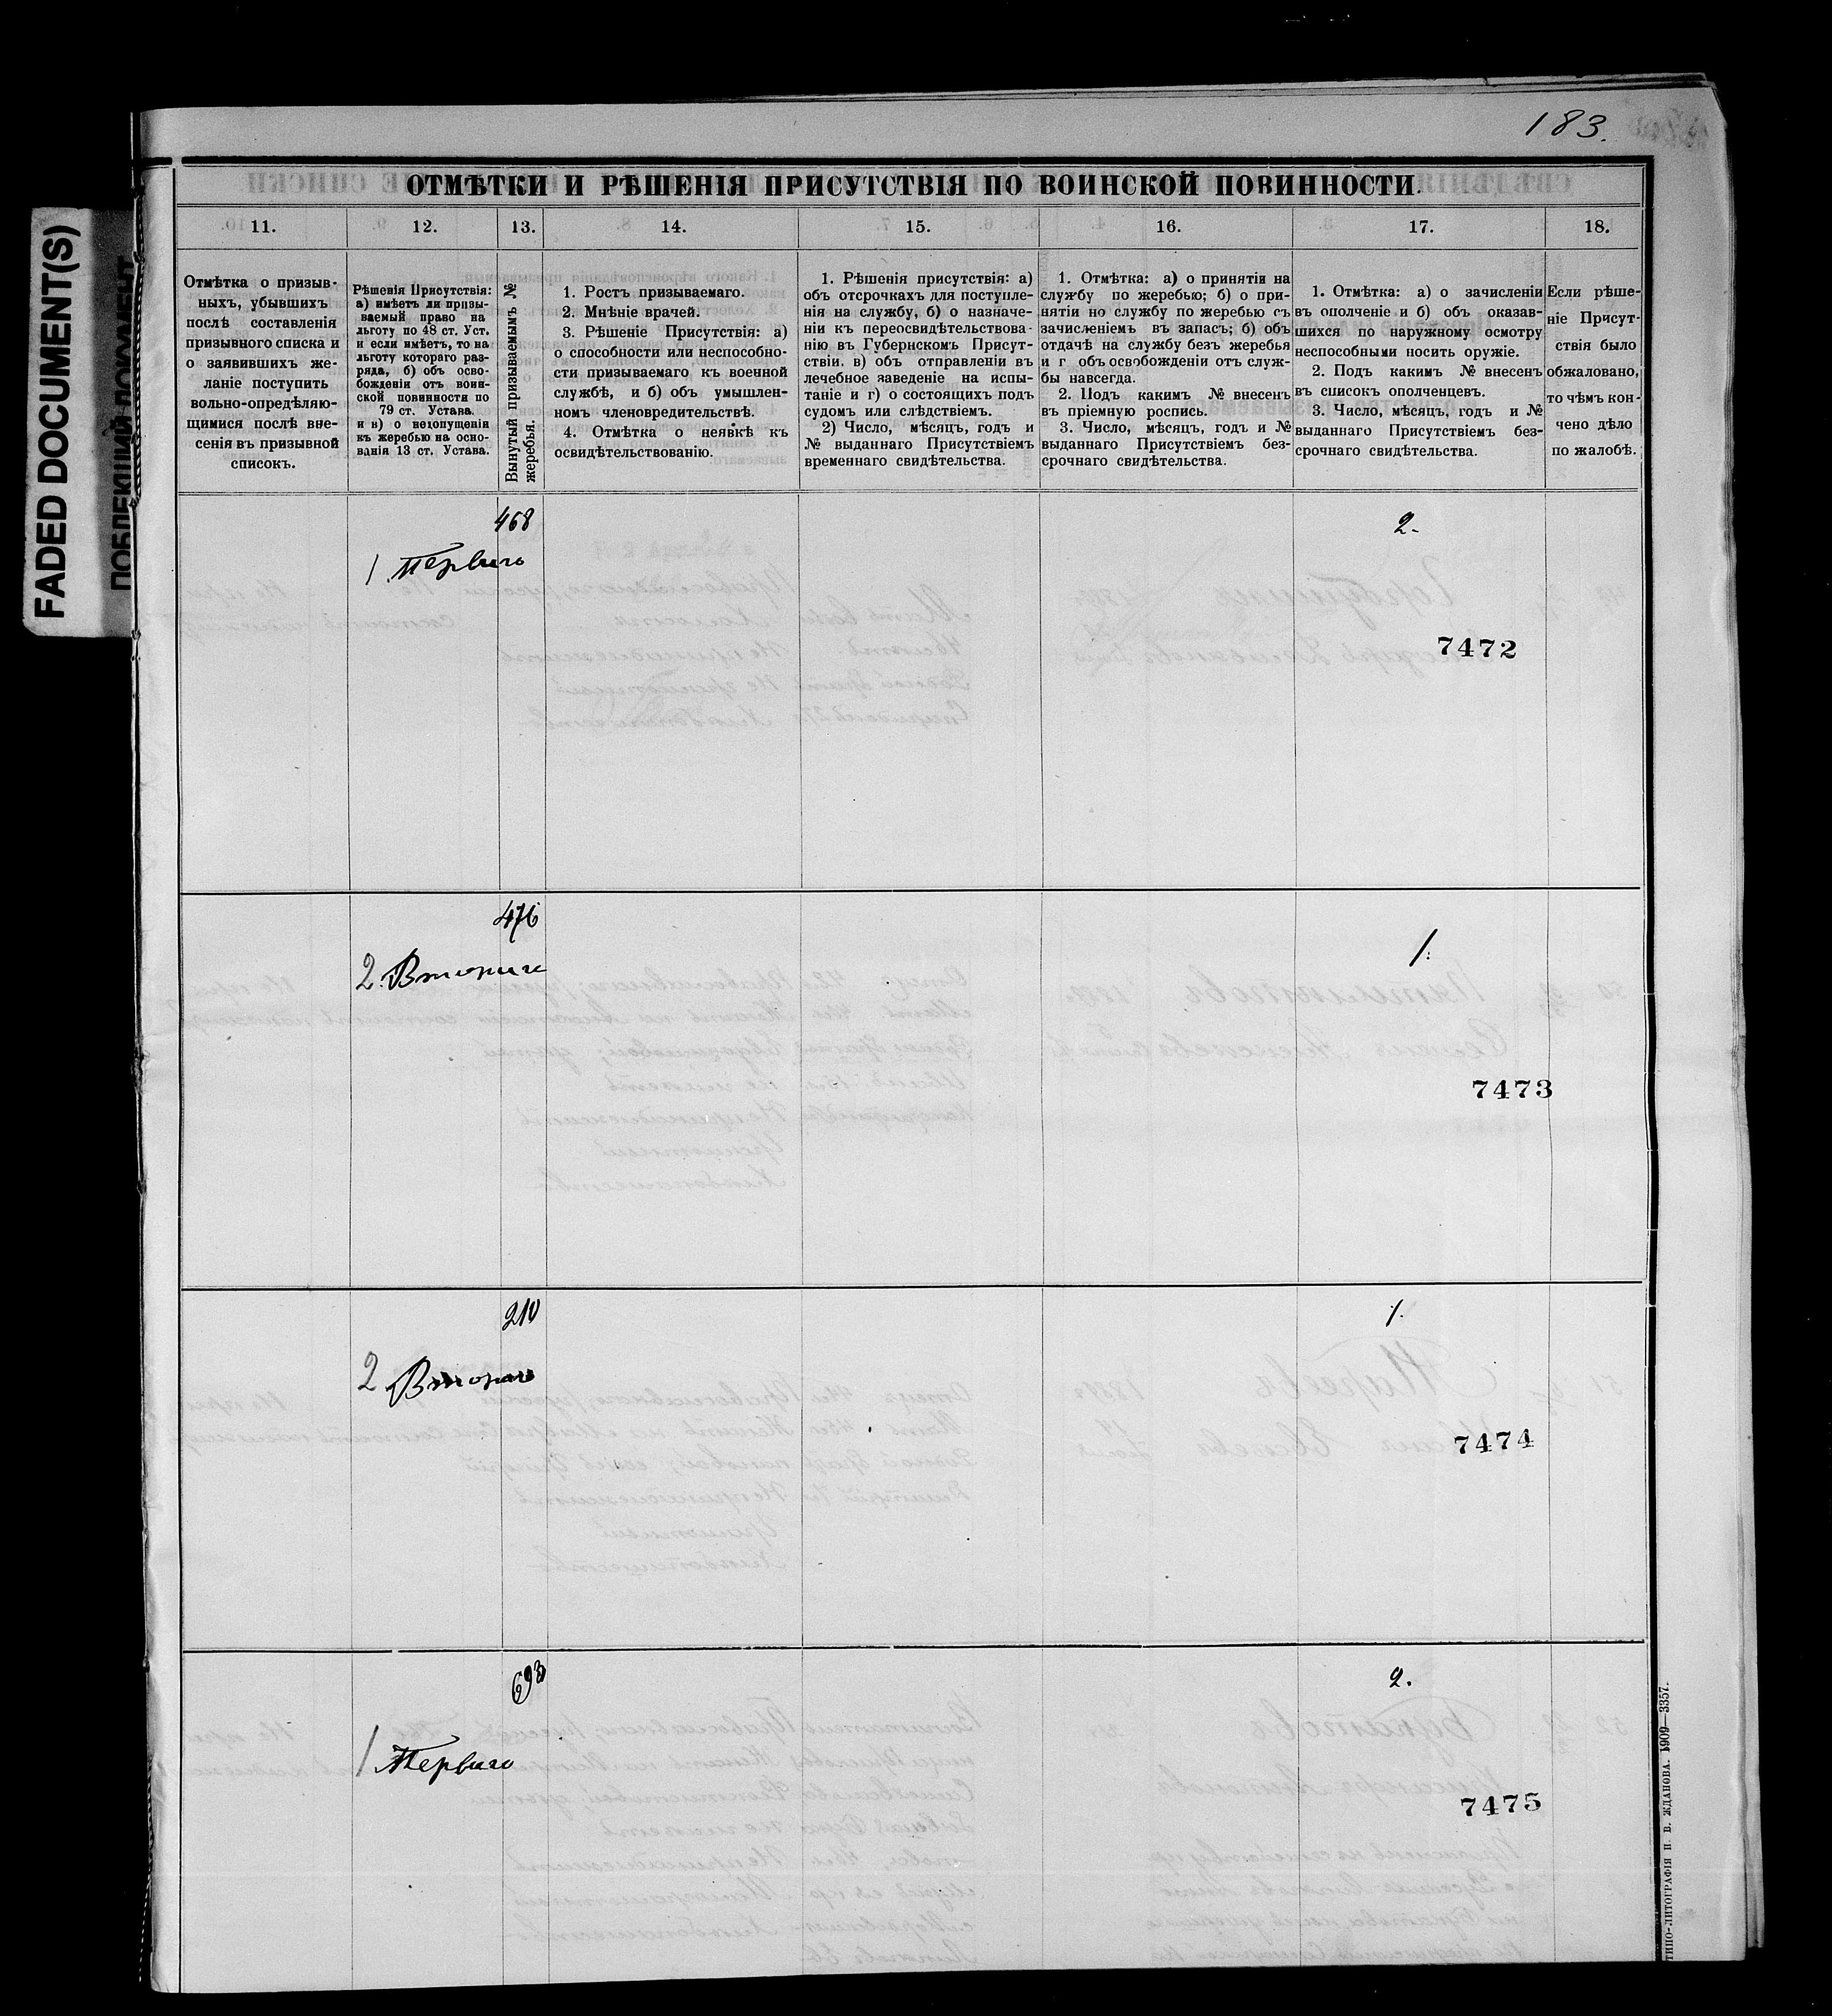 183.
FADED DOCUMENT(S)
ПОБЛЕКШИЙ ДОКУМЕНТ
ОТМѢТКИ И РѢШЕНІЯ ПРИСУТСТВІЯ ПО ВОИНСКОЙ ПОВИННОСТИ.
11. 12. 13. 14. 15. 16. 17. 18.
Отмѣтка о призыв-
ныхъ, убывшихъ
послѣ составленія
призывного списка и
о заявившихъ же-
ланіе поступить
вольно-опредѣляю-
щимися послѣ вне-
сенія въ призывной
списокъ.
Рѣшенія Присутствія:
а) имѣетъ ли призы-
ваемый право на
льготу по 48 ст. Уст.
и если имѣетъ, то на
льготу котораго раз-
ряда, б) объ осво-
божденіи отъ воин-
ской повинности по
79 ст. Устава.
и в) о недопущеніи
къ жеребью на осно-
ваніи 13 ст. Устава.
Вынутый призываемымъ №
жеребья.
1. Ростъ призываемаго.
2. Мнѣніе врачей.
3. Рѣшеніе Присутствія: а)
о способности или неспособно-
сти призываемаго къ военной
службѣ, и б) объ умышлен-
номъ членовредительствѣ.
4. Отмѣтка о неявкѣ къ
освидѣтельствованію.
1. Рѣшенія присутствія: а)
объ отсрочкахъ для поступле-
нія на службу, б) о назначе-
ніи къ переосвидѣтельствова-
нію въ Губернскомъ Присут-
ствіи. в) объ отправленіи въ
лечебное заведеніе на испы-
таніе и г) о состоящихъ подъ
судомъ или слѣдствіемъ.
2) Число, мѣсяцъ, годъ и
№ выданнаго Присутствіемъ
временнаго свидѣтельства.
1. Отмѣтка: а) о принятіи на
службу по жеребью; б) о при-
нятіи но службу по жеребью съ
зачисленіемъ въ запасъ; б) объ
отдачѣ на службу безъ жеребья
и г объ освобожденіи отъ служ-
бы навсегда.
2. Подъ какимъ № внесенъ
въ пріемную роспись.
3. Число, мѣсяцъ, годъ и №
выданнаго Присутствіемъ без-
срочнаго свидѣтельства.
1. Отмѣтка: а) о зачисленіи
въ ополченіе и б) объ оказав-
шихся по наружному осмотру
неспособными носить оружіе.
2. Подъ какимъ № внесенъ
въ списокъ ополченцевъ.
3. Число, мѣсяцъ, годъ и №
выданнаго Присутствіемъ без-
срочнаго свидѣтельства.
Если рѣше-
ніе Присут-
ствія было
обжаловано,
то чѣмъ кон-
чено дѣло
по жалобѣ.
468 2.
1 Перваго
7472
476 1.
2. Втораго
7473
210 1.
2 Втораго
7474
693 2.
1 Перваго
7475
ТИПО-ЛИТОГРАФІЯ П. В. ЖДАНОВА. 1909—3357.